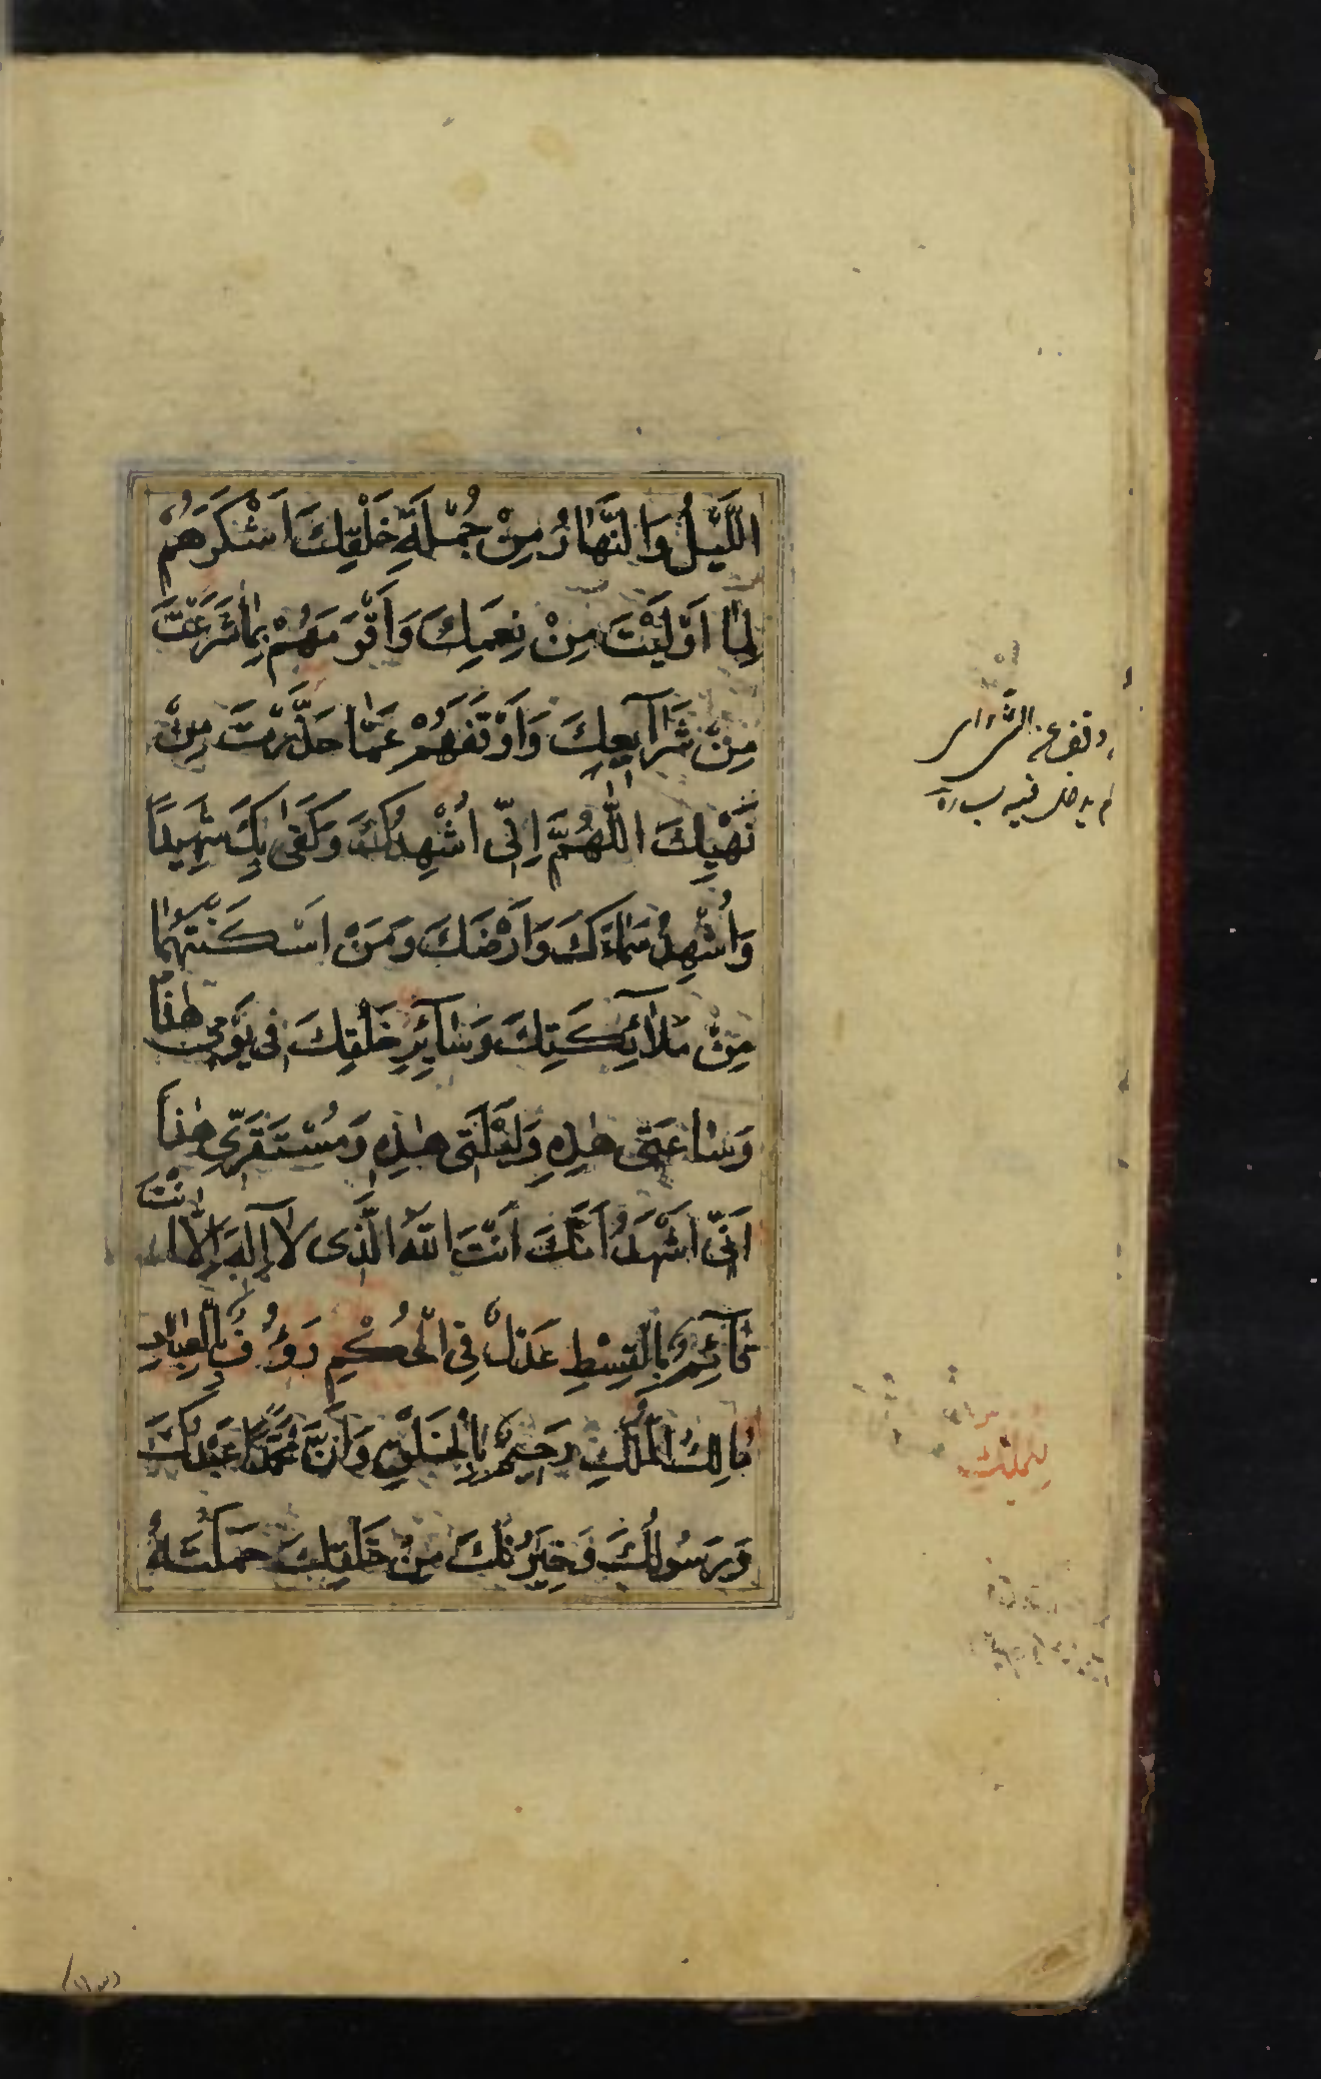 اللَّيْلُ وَالنَّهَارُ مِنْ جُمْلَةِ خَلْقِكَ اَشْكَرَهُمْ
لِمَا اَوْلَيْتَ مِنْ نِعَمِكَ وَاَقْوَمَهُمْ بِمَا شَرَعْتَ
مِنْ شَرَآيِعِكَ وَاَوْقَفَهُمْ عَمَّا حَذَّرْتَ مِنْ
نَهْيِكَ اللّٰهُمَّ اِنّي اُشْهِدُكَ وَكَفىٰ بِكَ شَهِيدًا
وَاُشْهِدُ سَمَاءَكَ وَاَرْضَكَ وَمَنْ اَسْكَنْتَهُمَا
مِنْ مَلٰآئِكَتِكَ وَسَآئِرِ خَلْقِكَ فى يَوْمِي هٰذَا
وَسَاعَتى هٰذِهِ وَلَيْلَتى هٰذِهِ وَمُسْتَقَرِّي هٰذَا
اَنّي اَشْهَدُ اَنَّكَ اَنْتَ اللّٰهُ الَّذى لٰا اِلٰهَ اِلَّا اَنْتَ
قَآئِمٌ بِالْقِسْطِ عَدْلٌ فِي الْحُكْمِ رَؤُفٌ بِالْعِبَادِ
مَالِكُ الْمُلْكِ رَحِيمٌ بِالْخَلْقِ وَاَنَّ مُحَمَّدًا عَبْدُكَ
وَرَسُولُكَ وَخِيَرَتُكَ مِنْ خَلْقِكَ حَمَّلْتَهُ